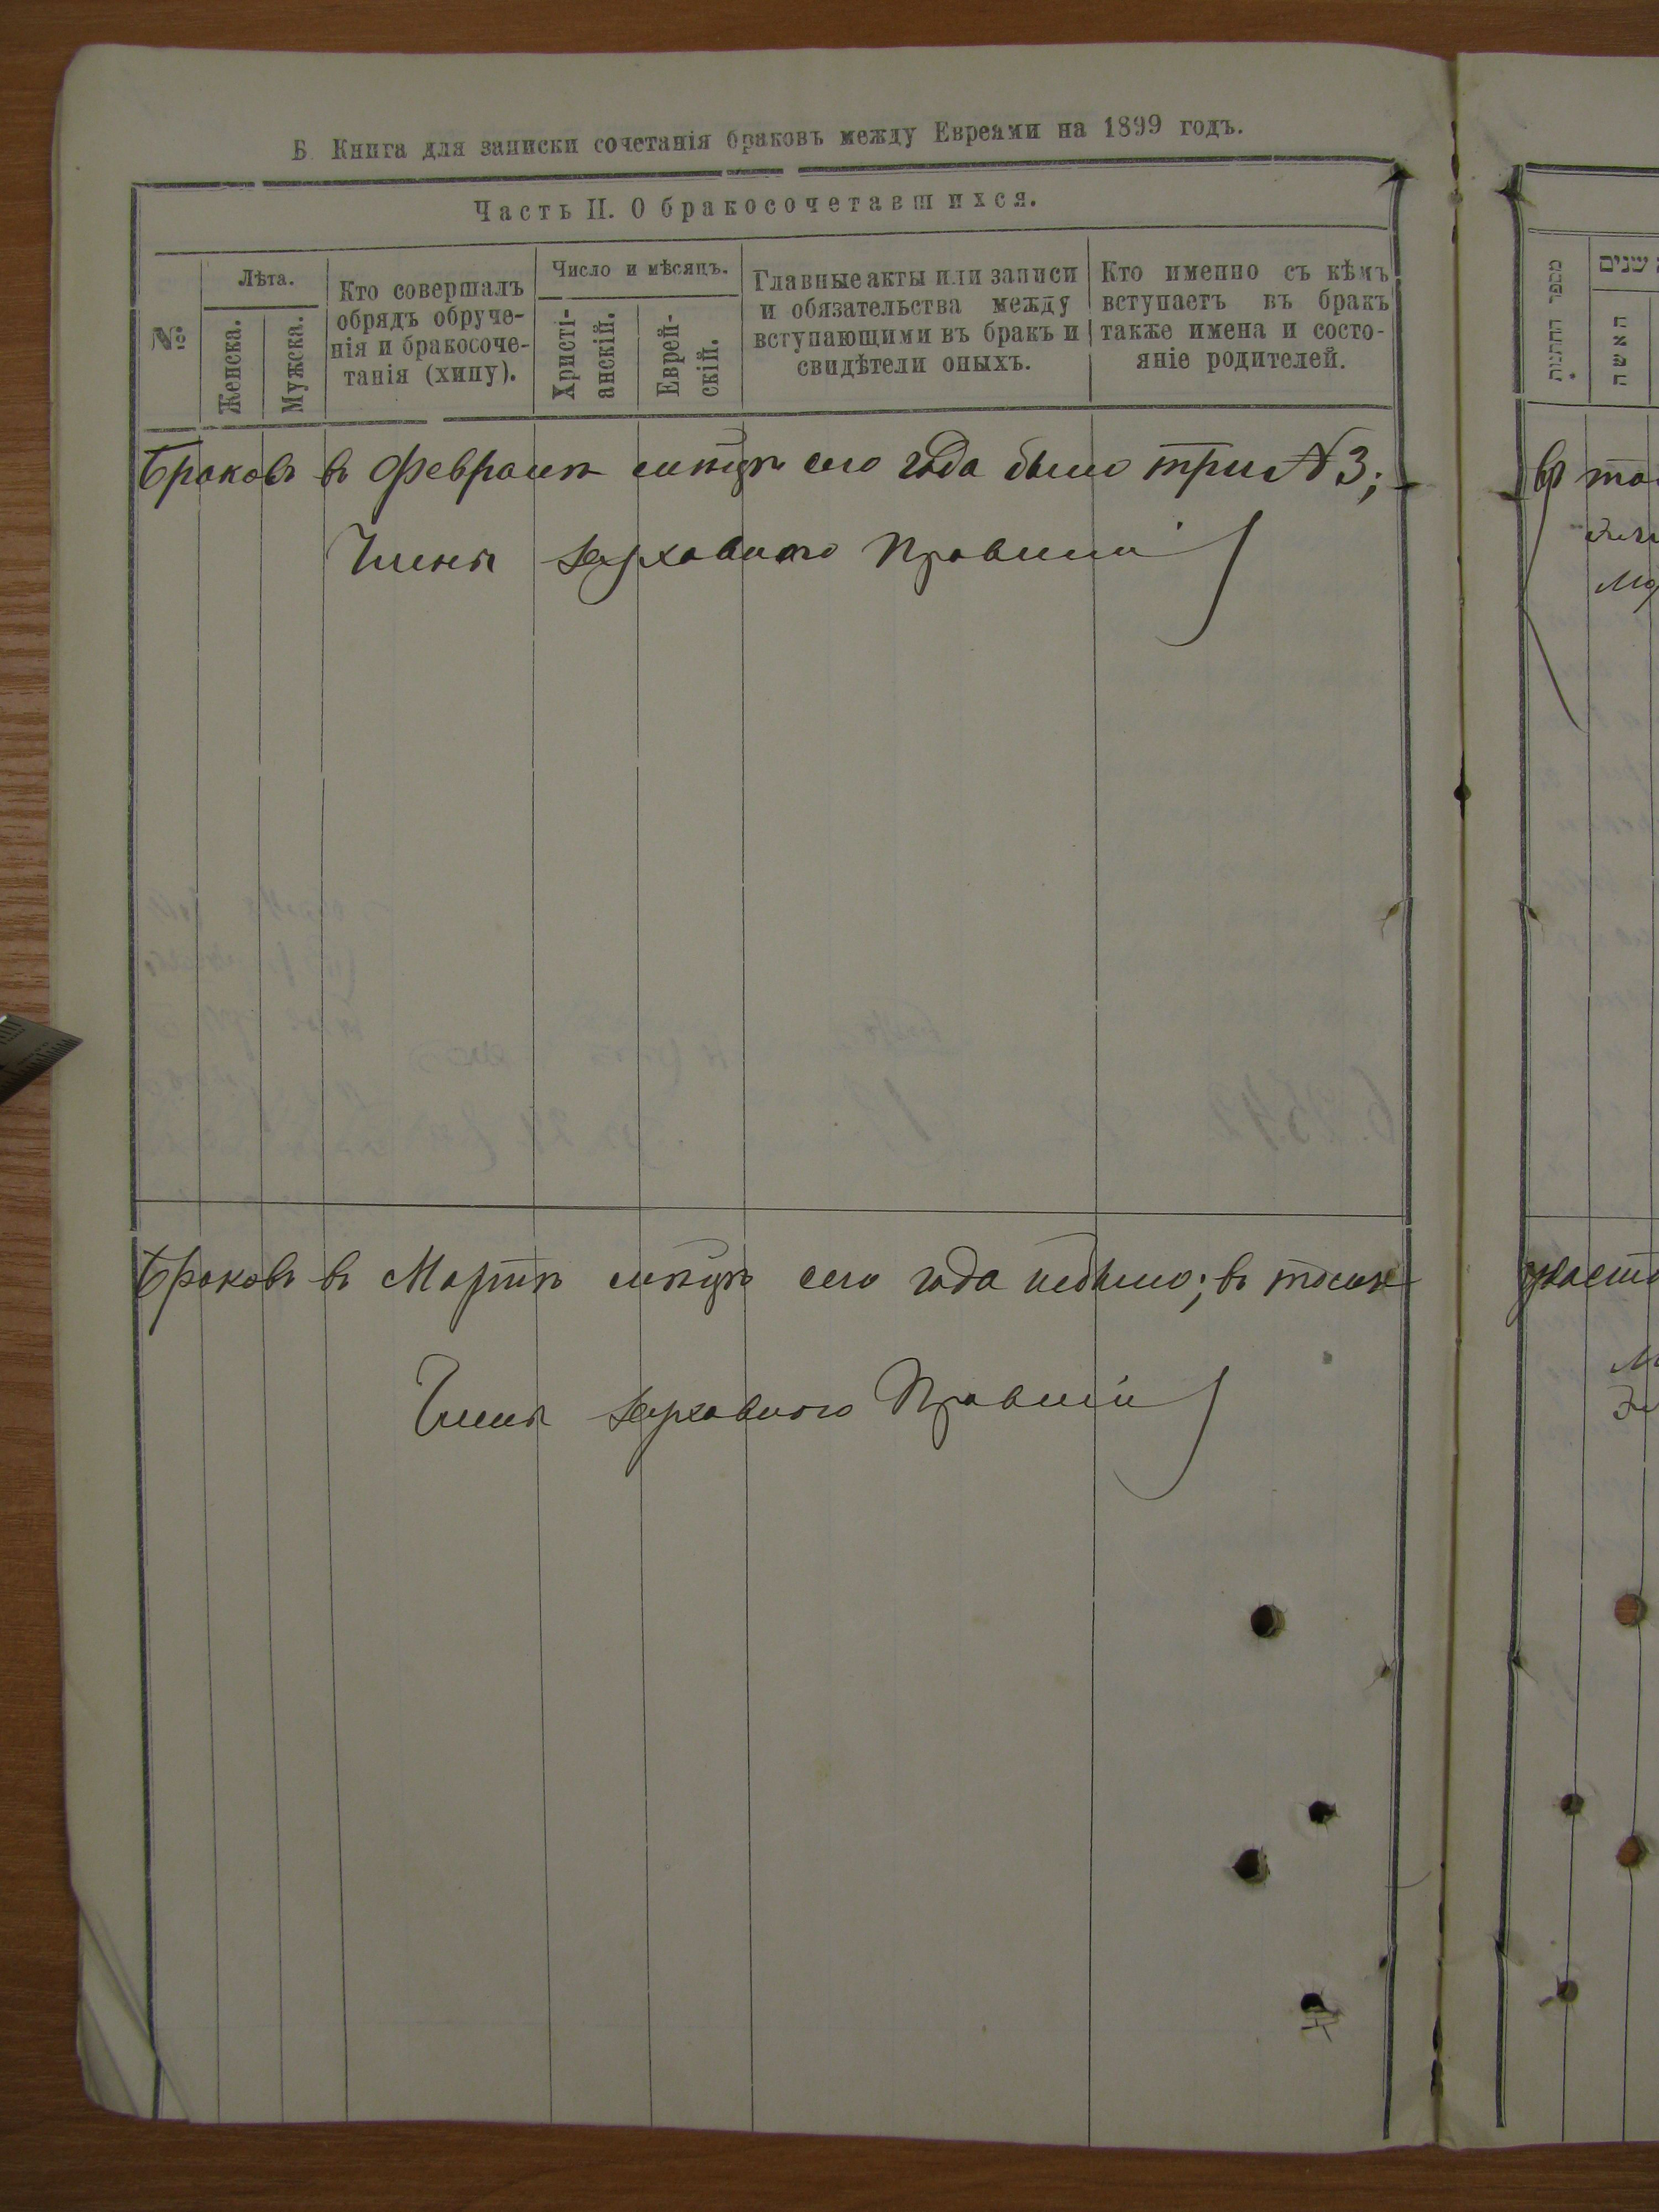 Б Книга для записки сочетанія браковъ между Евреями на 1899 годъ.
Часть II. О бракосочетавшихся.
№
Лѣта.
Женска.
Мужска.
Кто совершалъ
обрядъ обруче-
нія и бракосоче-
танія (хипу).
Число и мѣсяцъ.
Христі-
анскій.
Еврей-
скій.
Главные акты или записи
и обязательства между
вступающими въ бракъ и
свидѣтели оныхъ.
Кто именно съ кѣмъ
вступаетъ въ бракъ
также имена и состо-
яніе родителей.
Браковъ въ Февралѣ мѣсяцѣ сего года было три №3;
Члены Духовного Правленія
Браковъ въ Мартѣ мѣсяцѣ сего года небыло; въ томъ
Члены Духовного Правленія
מספר החתנות
שנים
האשה